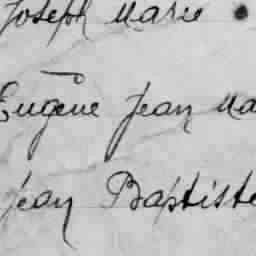 Joseph Marie
Eugène Jean Ma
Jean Baptiste